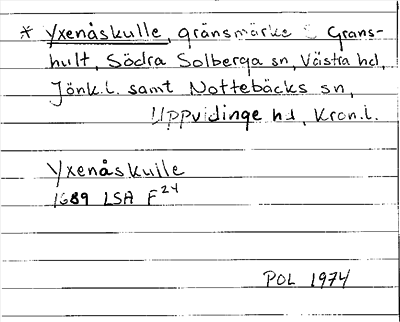 * Yxenåskulle, gränsmärke S Grans-
hult, Södra Solberga sn, Västra hd,
Jönk.l. samt Nottebäcks sn,
Uppvidinge hd, Kron.l.
Yxenåskulle
1689 LSA F24
POL 1974